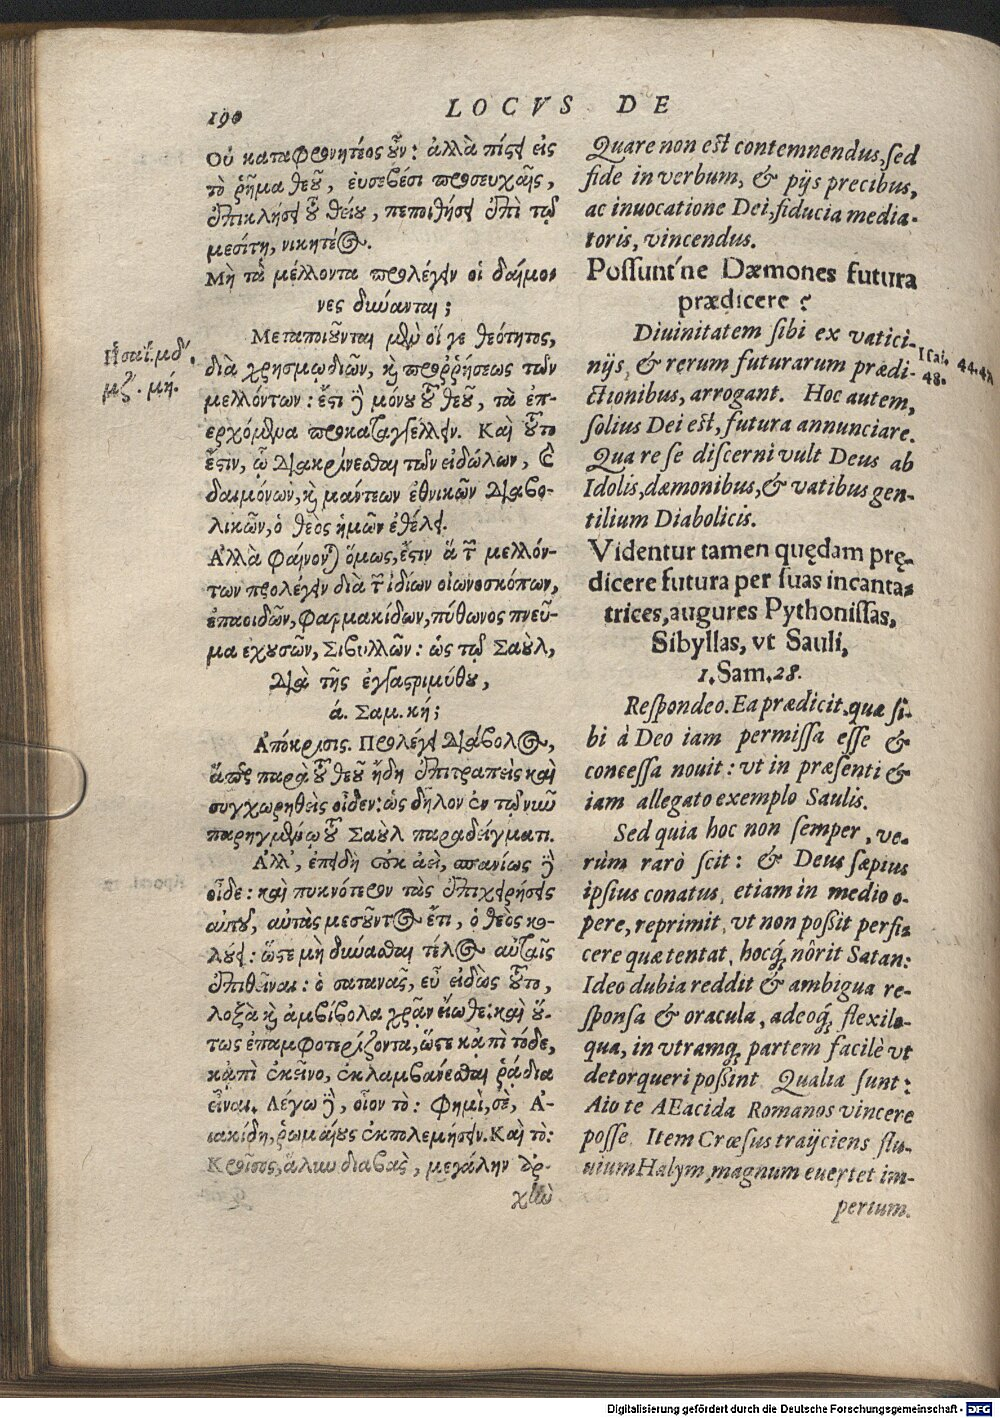 190
LOCVS DE
Οὐ καταφρονητέος οὖν: ἀλλὰ πίστει εἰς
τὸ ῥῆμα θεοῦ, εὐσεβέσι προσευχαῖς,
ἐπικλήσει τοῦ θείου, πεποιθήσει ἐπὶ τῷ
μεσίτῃ, νικητέος.
Μὴ τὰ μέλλοντα προλέγειν οἱ δαίμο-
νες δύνανται;
Μεταποιοῦνται μὲν οἵ γε θεότητος,
διὰ χρησμῳδιῶν, καὶ προῤῥήσεως τῶν
μελλόντων: ἔστι δὲ μόνου τοῦ θεοῦ, τὰ ἐπ-
ερχόμενα προκαταγγέλλειν. Καὶ τοῦτό
ἐστιν, ᾧ διακρίνεσθαι τῶν εἰδώλων, καὶ
δαιμόνων, καὶ μάντεων ἐθνικῶν διαβο-
λικῶν, ὁ θεὸς ἡμῶν ἐθέλει.
Ἀλλὰ φαίνονται ὅμως, ἔστιν ἃ τῶν μελλόν-
των προλέγειν διὰ τῶν ἰδίων οἰωνοσκόπων,
ἐπαοιδῶν, φαρμακίδων, πύθωνος πνεῦ-
μα ἐχουσῶν, Σιβυλλῶν: ὡς τῷ Σαοὺλ,
διὰ τῆς ἐγγαστριμύθου,
ά. Σαμ. κή;
Ἀπόκρισις. Προλέγει διάβολος,
ἅπερ παρὰ τοῦ θεοῦ ἤδη ἐπιτραπεὶς καὶ
συγχωρηθεὶς οἶδεν: ὡς δῆλον ἐν τῷ νῦν
παρηγμένῳ τοῦ Σαοὺλ παραδείγματι.
Ἀλλ', ἐπειδὴ οὐκ ἀεὶ, σπανίως δὲ
οἶδε: καὶ πυκνότερον τὰς ἐπιχειρήσεις
αὐτοῦ, αὐτὰς μεσοῦντος ἔτι, ὁ θεὸς κω-
λύει: ὥστε μὴ δύνασθαι τέλος αὐταῖς
ἐπιθεῖναι: ὁ σατανᾶς, εὖ εἰδὼς τοῦτο,
λοξὰ καὶ ἀμφίβολα χρᾷν εἴωθε: καὶ οὕ-
τως ἐπαμφοτερίζοντα, ὥστε κἀπὶ τόδε,
κἀπὶ ἐκεῖνο, ἐκλαμβάνεσθαι ῥᾴδια
εἶναι. Λέγω δὲ, οἷον τὸ: Φημὶ, σὲ, Α-
ιακίδη, ῥωμαίους ἐκπολεμήσειν. Καὶ τὸ:
Κροῖσος, ἅλυν διαβὰς, μεγάλην ἀρ-
χὴν
Ἡσαΐ. μδ'.
μζ'. μή.
Quare non est contemnendus, sed
fide in verbum, & pijs precibus,
ac inuocatione Dei, fiducia media-
toris, vincendus.
Possunt'ne Dæmones futura
prædicere?
Diuinitatem sibi ex vatici-
nijs, & rerum futurarum prædi-
ctionibus, arrogant. Hoc autem,
solius Dei est, futura annunciare.
Qua re se discerni vult Deus ab
Idolis, dæmonibus, & vatibus gen-
tilium Diabolicis.
Videntur tamen quędam prę-
dicere futura per suas incanta-
trices, augures Pythonissas,
Sibyllas, vt Sauli,
1. Sam. 28.
Respondeo. Ea prædicit, quæ si-
bi à Deo iam permissa esse &
concessa nouit: vt in præsenti &
iam allegato exemplo Saulis.
Sed quia hoc non semper, ve-
rùm rarò scit: & Deus sæpius
ipsius conatus, etiam in medio o-
pere, reprimit, vt non possit perfi-
cere quæ tentat, hocq́; nôrit Satan:
Ideo dubia reddit & ambigua re-
sponsa & oracula, adeoq́; flexilo-
qua, in vtramq; partem facilè vt
detorqueri possint. Qualia sunt:
Aio te AEacida Romanos vincere
posse. Item Crœsus traijciens flu-
uium Halym, magnum euertet im-
perium.
Isai. 44. 47
48.
Digitalisierung gefördert durch die Deutsche Forschungsgemeinschaft - DFG